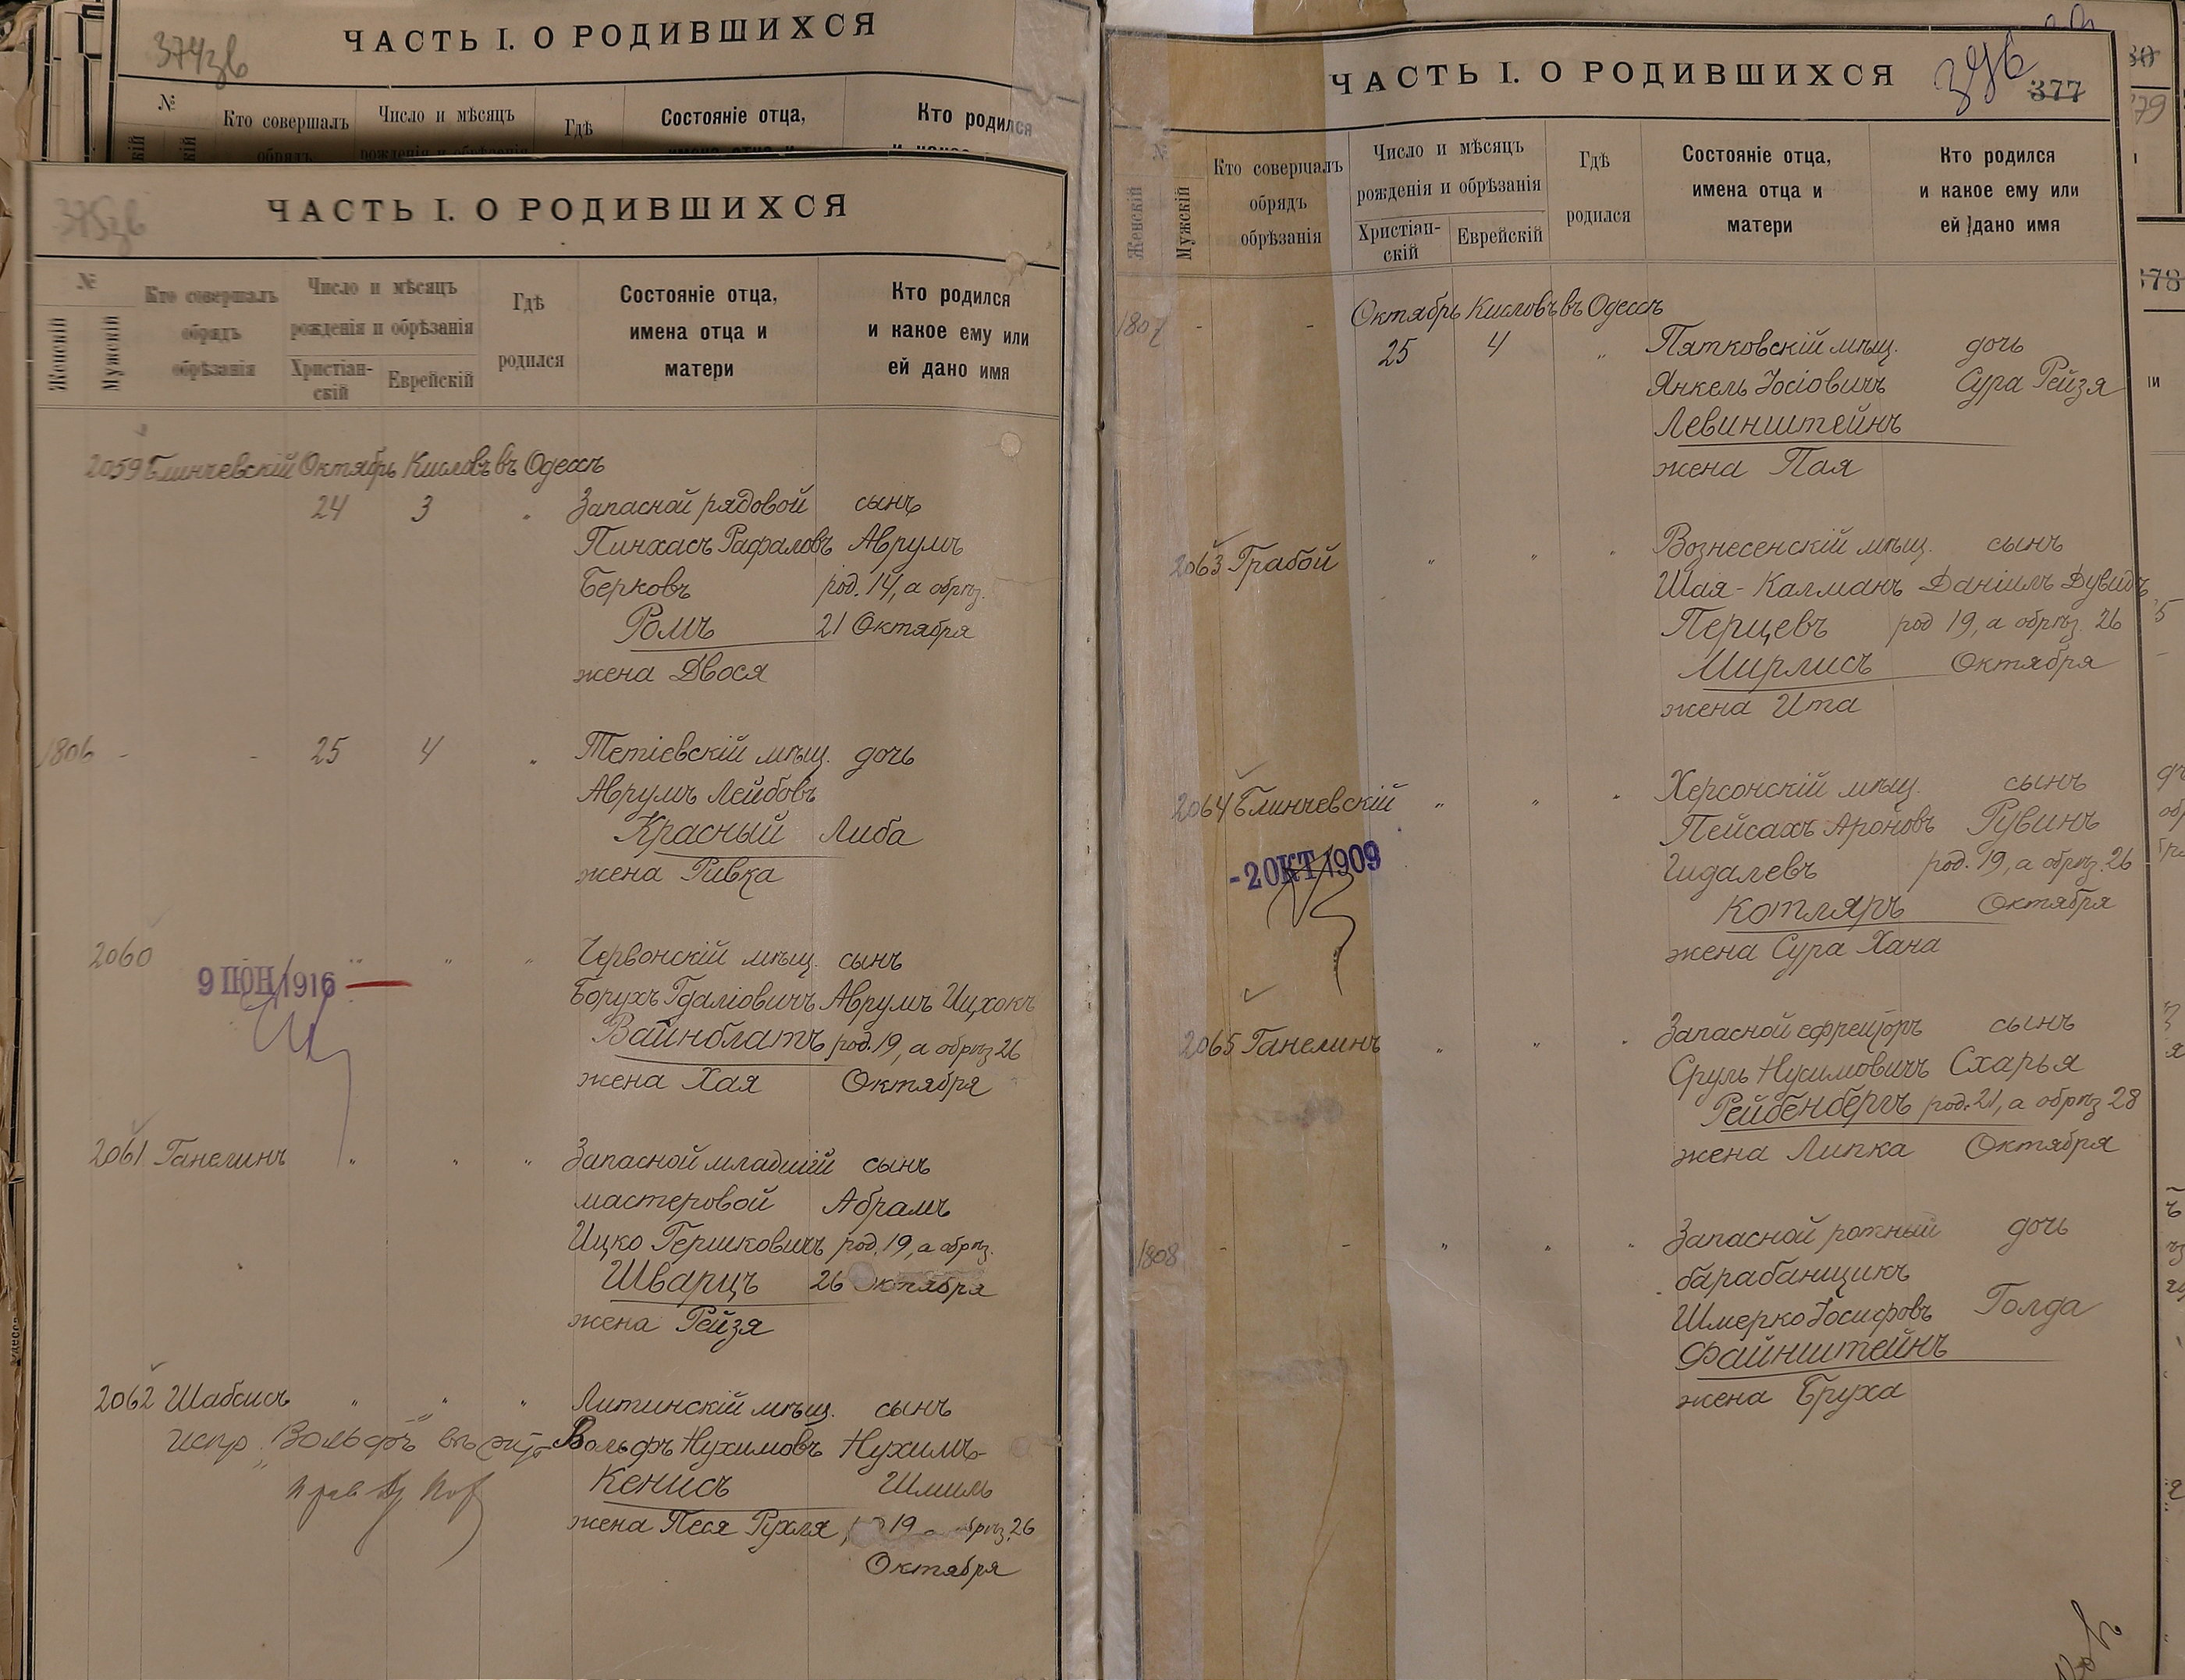 374зв
ЧАСТЬ I. О РОДИВШИХСЯ
№
Кто совершалъ
Число и мѣсяцъ
Гдѣ
Состояніе отца,
Кто родился
375зв
ЧАСТЬ I. О РОДИВШИХСЯ
№
Женскій
Мужскій
Кто совершалъ
обрядъ
обрѣзанія
Число и мѣсяцъ
рожденія и обрѣзанія
Христіан-
скій
Еврейскій
Гдѣ
родился
Состояніе отца,
имена отца и
матери
Кто родился
и какое ему или
ей дано имя
2059 Блинчевскій Октябрь Кисловъ въ Одессѣ
24 3 " Запасной рядовой сынъ
Пинхасъ Рафаловъ Аврумъ
Берковъ род. 14, а обрѣз.
Ромъ 21 Октября
жена Двося
1806 - - 25 4 " Тетіевскій мѣщ. дочь
Аврумъ Лейбовъ
Красный Либа
жена Ривка
2060 " " " Червонскій мѣщ. сынъ
9 ІЮН 1916
Борухъ Гдаліовичъ Аврумъ Ицхокъ
Вайнблатъ род. 19, а обрѣз 26
жена Хая Октября
2061 Ганелинъ " " " Запасной младшій сынъ
мастеровой Абрамъ
Ицко Гершковичъ род. 19, а обрѣз.
Шварцъ 26 Октября
жена Рейзя
2062 Шабсисъ " " " Литинскій мѣщ. сынъ
испр. "Вольфъ"
Вольфъ Нухимовъ Нухимъ-
Кенисъ Шмиль
жена Песя Рухля, 19 обрѣз. 26
Октября
ЧАСТЬ I. О РОДИВШИХСЯ
376
377
№
Женскій
Мужскій
Кто совершалъ
обрядъ
обрѣзанія
Число и мѣсяцъ
рожденія и обрѣзанія
Христіан-
скій
Еврейскій
Гдѣ
родился
Состояніе отца,
имена отца и
матери
Кто родился
и какое ему или
ей дано имя
1807 - - Октябрь Кисловъ въ Одессѣ
25 4 " Пятковскій мѣщ. дочь
Янкель Іосіовичъ Сура Рейзя
Левинштейнъ
жена Пая
2063 Грабой " " " Вознесенскій мѣщ. сынъ
Шая-Калманъ Даніилъ Дувидъ
Перцевъ род 19, а обрѣз. 26
Мирлисъ Октября
жена Ита
2064 Блинчевскій " " " Херсонскій мѣщ. сынъ
Пейсахъ Ароновъ Рувинъ
-2 ОКТ 1909
Гидалевъ род. 19, а обрѣз. 26
Котляръ Октября
жена Сура Хана
2065 Ганелинъ " " " Запасной ефрейторъ сынъ
Сруль Нусимовичъ Схарья
Рейбенбергъ род. 21, а обрѣз 28
жена Липка Октября
1808 - - " " " Запасной ротный дочь
барабанщикъ
Шмерко Іосифовъ Голда
Файнштейнъ
жена Бруха